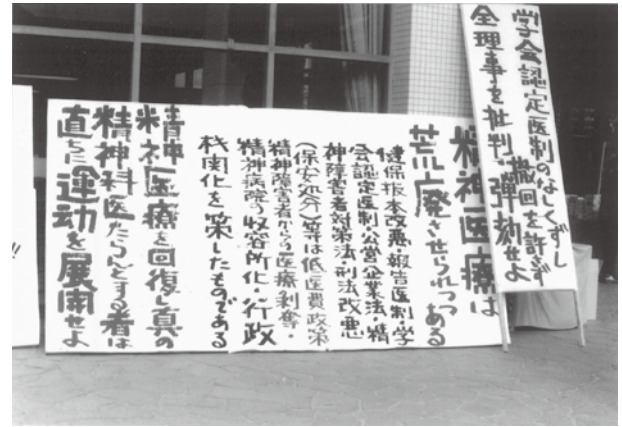 学会認定医制のなしくずし
撤回を許さず
全理事を批判・弾劾せよ
精神医療は
荒廃させられつつある
健保抜本改悪・報告医制・学
会認定医制・公営企業法・精
神障害者対策法・刑法改悪
(保安処分)等は低医費政策
精神障害者からの医療剥奪・
精神病院の収容所化・行政
機関化を策したものである
精神医療を回復し真の
精神科医たらんとする者は
直ちに運動を展開せよ
!!